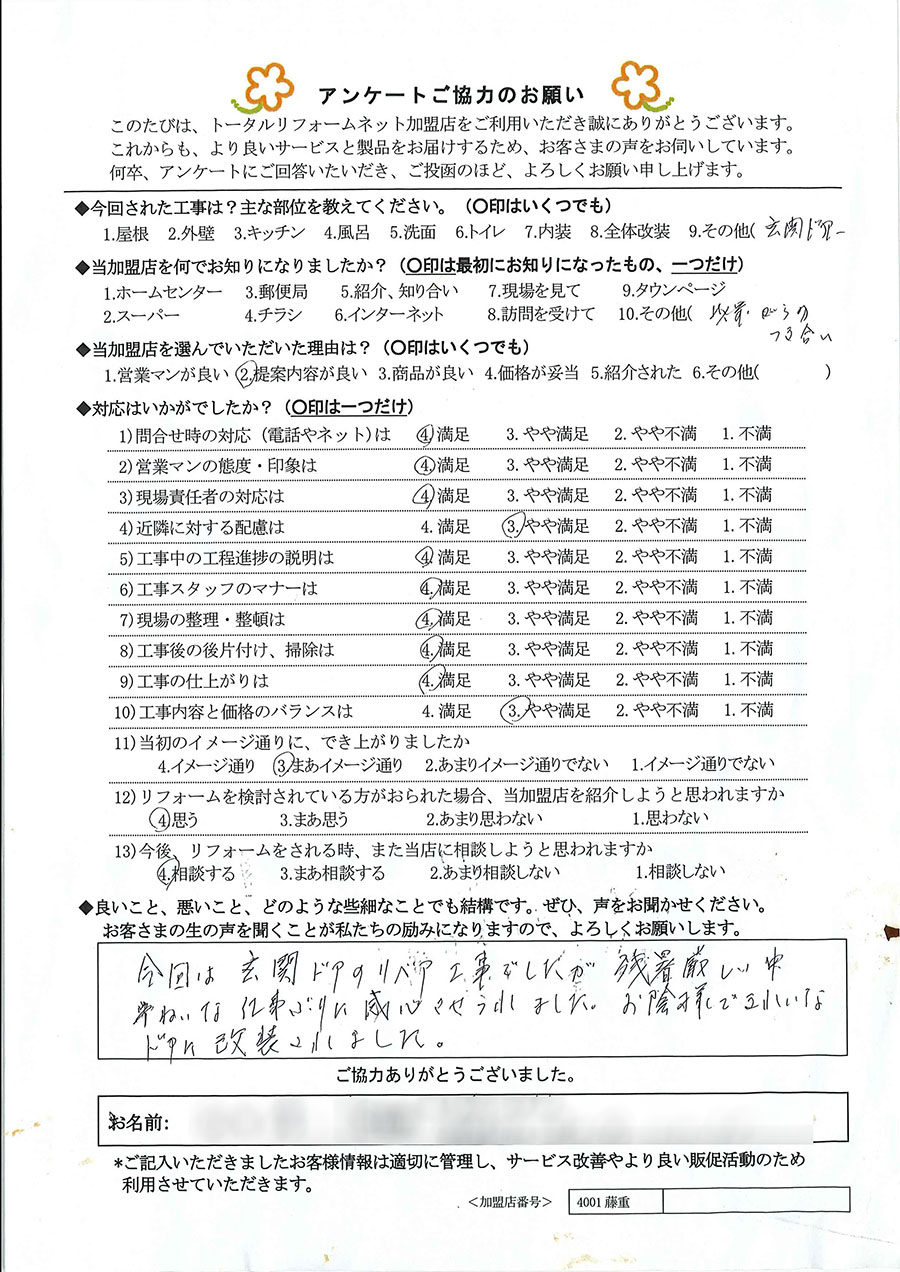 アンケートご協力のお願い
このたびは、トータルリフォームネット加盟店をご利用いただき誠にありがとうございます。
これからも、より良いサービスと製品をお届けするため、お客さまの声をお伺いしています。
何卒、アンケートにご回答いたいだき、ご投函のほど、よろしくお願い申し上げます。
◆今回された工事は？主な部位を教えてください。（〇印はいくつでも）
1.屋根 2.外壁 3.キッチン 4.風呂 5.洗面 6.トイレ 7.内装 8.全体改装 9.その他( 玄関ドアー
◆当加盟店を何でお知りになりましたか？（〇印は最初にお知りになったもの、一つだけ）
1.ホームセンター 3.郵便局 5.紹介、知り合い 7.現場を見て 9.タウンページ
2.スーパー 4.チラシ 6.インターネット 8.訪問を受けて 10.その他(
◆当加盟店を選んでいただいた理由は？（〇印はいくつでも）
1.営業マンが良い 2.提案内容が良い 3.商品が良い 4.価格が妥当 5.紹介された 6.その他( )
◆対応はいかがでしたか？（〇印は一つだけ）
1)問合せ時の対応（電話やネット）は 4.満足 3.やや満足 2.やや不満 1.不満
2)営業マンの態度・印象は 4.満足 3.やや満足 2.やや不満 1.不満
3)現場責任者の対応は 4.満足 3.やや満足 2.やや不満 1.不満
4)近隣に対する配慮は 4.満足 3.やや満足 2.やや不満 1.不満
5)工事中の工程進捗の説明は 4.満足 3.やや満足 2.やや不満 1.不満
6)工事スタッフのマナーは 4.満足 3.やや満足 2.やや不満 1.不満
7)現場の整理・整頓は 4.満足 3.やや満足 2.やや不満 1.不満
8)工事後の後片付け、掃除は 4.満足 3.やや満足 2.やや不満 1.不満
9)工事の仕上がりは 4.満足 3.やや満足 2.やや不満 1.不満
10)工事内容と価格のバランスは 4.満足 3.やや満足 2.やや不満 1.不満
11)当初のイメージ通りに、でき上がりましたか
4.イメージ通り 3.まあイメージ通り 2.あまりイメージ通りでない 1.イメージ通りでない
12)リフォームを検討されている方がおられた場合、当加盟店を紹介しようと思われますか
4.思う 3.まあ思う 2.あまり思わない 1.思わない
13)今後、リフォームをされる時、また当店に相談しようと思われますか
4.相談する 3.まあ相談する 2.あまり相談しない 1.相談しない
◆良いこと、悪いこと、どのような些細なことでも結構です。ぜひ、声をお聞かせください。
お客さまの生の声を聞くことが私たちの励みになりますので、よろしくお願いします。
今回は玄関ドアのリペア工事でしたが 残暑厳しい中
ていねいな仕事ぶりに感心させられました。お陰様できれいな
ドアに改装されました。
ご協力ありがとうございました。
お名前:
*ご記入いただきましたお客様情報は適切に管理し、サービス改善やより良い販促活動のため
利用させていただきます。
＜加盟店番号＞ 4001 藤重